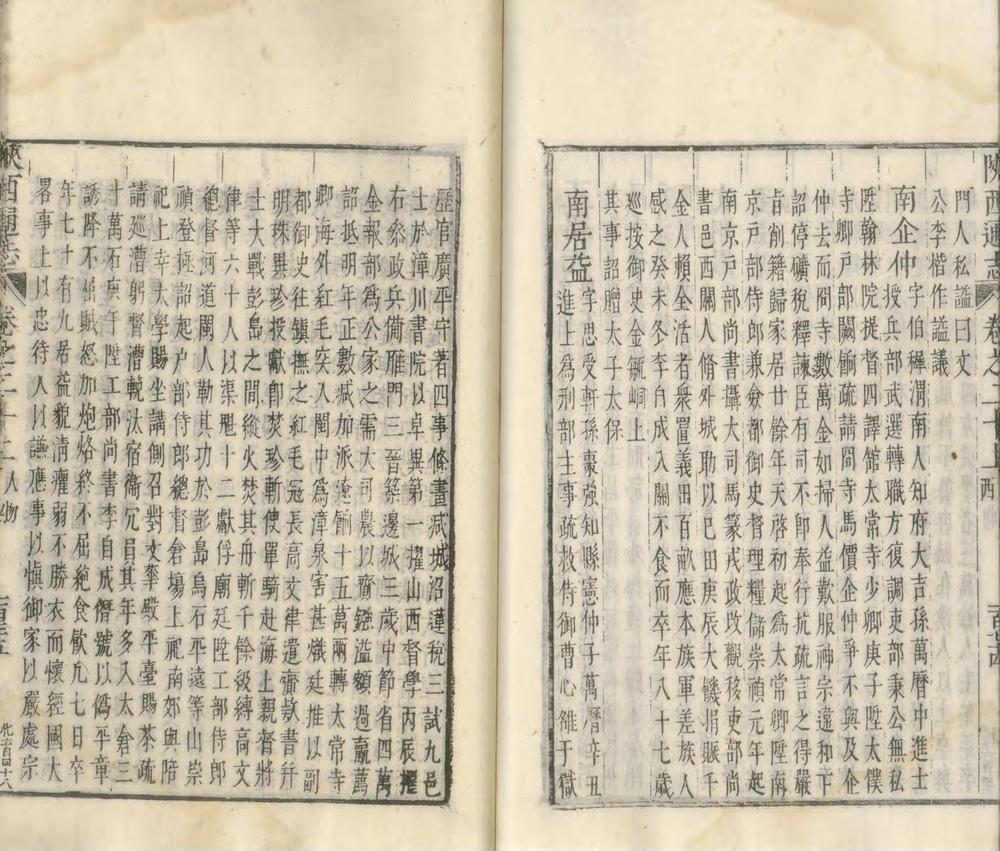 陝西通志 卷之二十上
門人私謚曰文
公李楷作謚議
南企仲字伯穉渭南人知府大吉孫萬曆中進士
授兵部武選轉職方復調吏部秉公無私
陞翰林院提督四譯館太常寺少卿庚子陞太僕
寺卿戶部闕餉疏請冏寺馬價企仲爭不與及企
仲去而冏寺數萬金如掃人益歎服神宗違和下
詔停礦稅釋諫臣有司不即奉行抗疏言之得嚴
旨削籍歸家居廿餘年天啓初起為太常卿陞南
京戶部侍郎兼僉都御史督理糧儲崇禎元年起
南京戶部尚書攝大司馬篆戎政改觀移吏部尚
書邑西關人脩外城助以己田庚辰大饑捐賑千
金人賴全活者衆置義田百畝應本族軍差族人
感之癸未冬李自成入關不食而卒年八十七歲
巡按御史金毓峒上
其事詔贈太子太保
南居益字思受軒孫棗強知縣憲仲子萬曆辛丑
進上為刑部主事疏救侍御曹心雒于獄
歷官廣平守著四事條畫減城沼蓮稅三試九邑
士於漳川書院以卓異第一擢山西督學丙辰擢
右叅政兵備雁門三晉築邊城三歲中節省四萬
金報部為公家之需大司農以齎鏹溢額過贏萬
詔抵明年正數減加派遼餉十五萬兩轉太常寺
卿海外紅毛突入閩中為漳泉害甚熾廷推以副
都御史往鎮撫之紅毛冦長高文律遣齎款書幷
明珠異珍投獻即焚珍斬使單騎赴海上親督將
士大戰彭島之間縱火焚其舟斬千餘級縛高文
律等六十人以渠魁十二獻俘廟廷陞工部侍郎
總督河道閩人勒其功於彭島烏石平遠等山崇
禎登極詔起户部侍郎總督倉塲上視南郊與陪
祀上幸太學賜坐講側召對文華殿平臺賜茶疏
請廵漕躬督漕輓法宿衞冗員其年多入太倉三
十萬石庚午陞工部尚書李自成僭號以偽平章
誘降不屈賊怒加炮烙終不屈絕食飲凢七日卒
年七十有九居益貌清癯弱不勝衣而懷經國大
畧事上以忠待人以謙應事以慎御家以嚴處宗
陝西通志 卷之二十上 人物